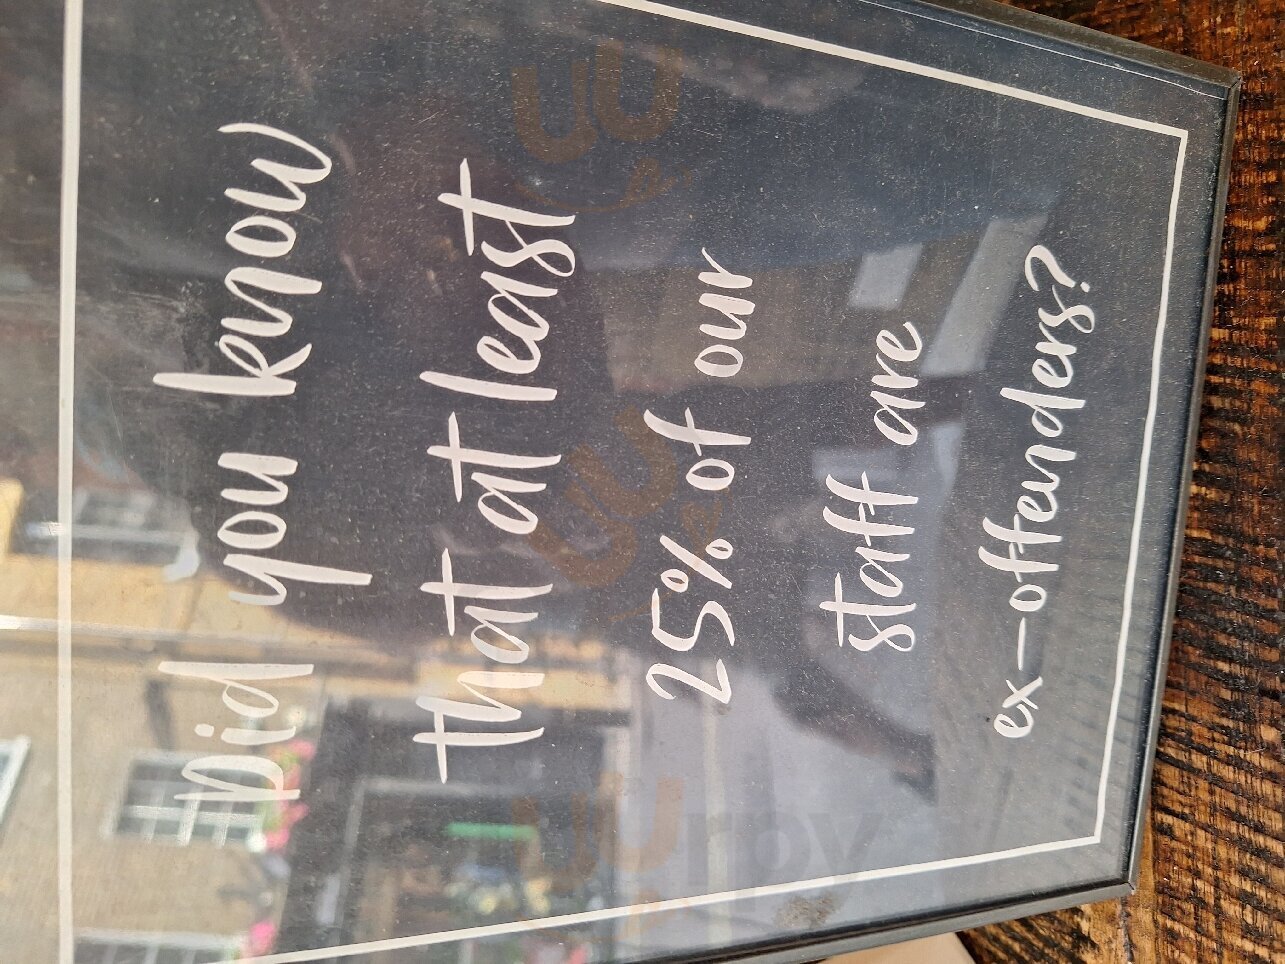 Did you know
that at least
25% of our
staff are
ex-offenders?